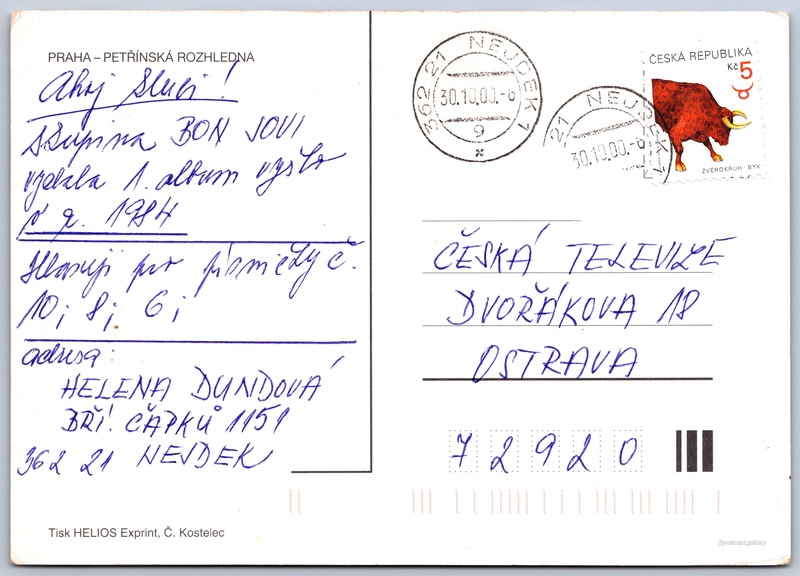 PRAHA – PETŘÍNSKÁ ROZHLEDNA
Ahoj Sluci!
skupina BON JOVI
vydala 1. album vyšlo
v r. 1984
Hlasuji pro písničky č.
10; 8; 6;
adresa:
HELENA DUNDOVÁ
BŘÍ. ČAPKŮ 1151
362 21 NEJDEK
Tisk HELIOS Exprint, Č. Kostelec
362 21 NEJDEK 1
30.10.00.-6
9
21 NEJDEK 1
30.10.00.-6
ČESKÁ REPUBLIKA
Kč 5
ZVĚROKRUH - BÝK
ČESKÁ TELEVIZE
DVOŘÁKOVA 18
OSTRAVA
72920
//postcard.gallery